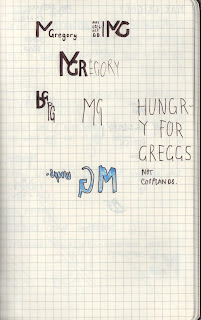 M Gregory
MG
MGREGORY
MG
HUNGR-
Y FOR
GREGGS
NOT
COPPLANDS.
MG